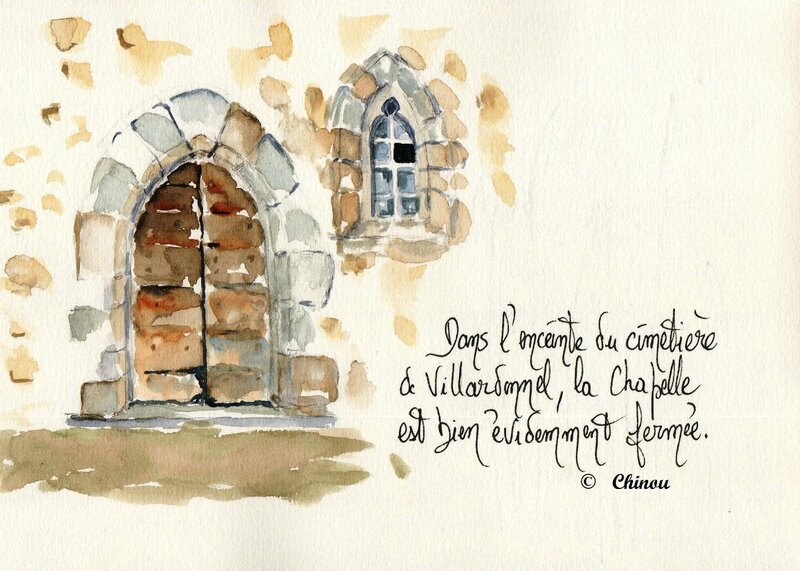 Dans l'enceinte du cimetière
de Villardonnel, la Chapelle
est bien évidemment fermée.
© Chinou